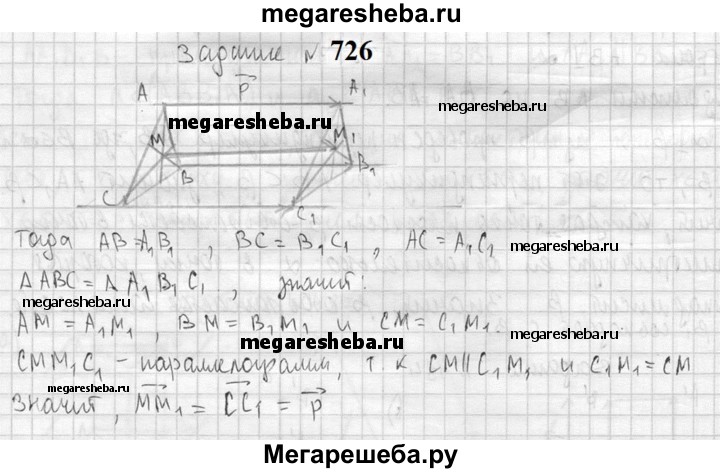 megaresheba.ru
Задание № 726
A p A₁
megaresheba.ru
megaresheba.ru
M M₁
B B₁
C C₁
Тогда AB = A₁B₁ , BC = B₁C₁ , AC = A₁C₁
megaresheba.ru
ΔABC = Δ A₁B₁C₁ , значит:
megaresheba.ru
AM = A₁M₁ , BM = B₁M₁ и CM = C₁M₁
megaresheba.ru
CMM₁C₁ - параллелограмм, т.к CM || C₁M₁ и C₁M₁ = CM
megaresheba.ru
megaresheba.ru
значит, MM₁ = CC₁ = p
Мегарешеба.ру